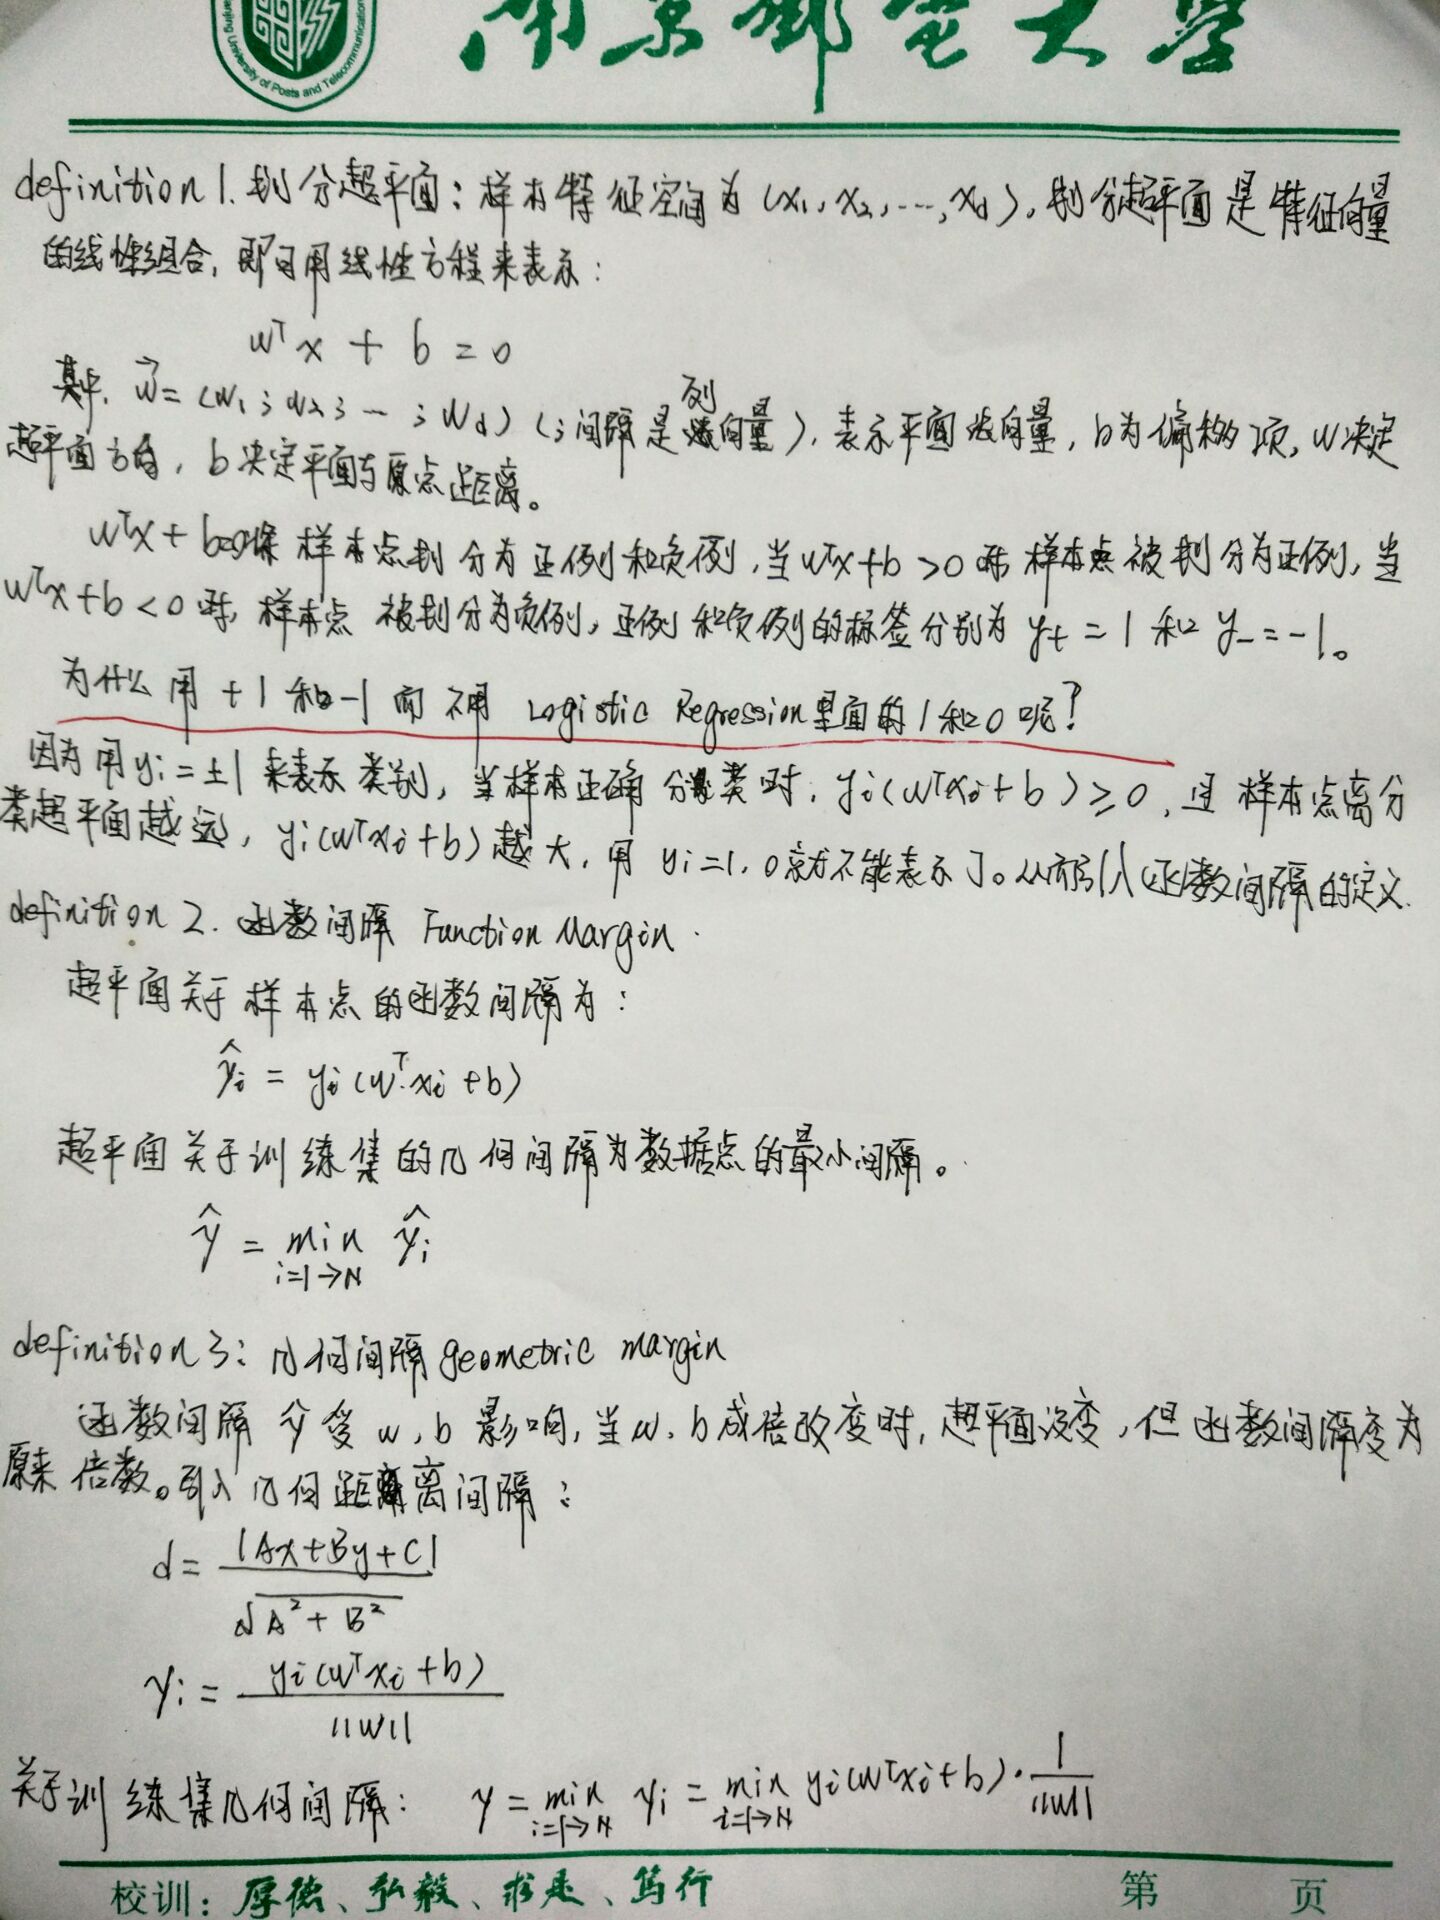 南京邮电大学
Nanjing University of Posts and Telecommunications
definition 1. 划分超平面：样本特征空间为 (x₁, x₂, ..., x_d), 划分超平面是特征向量
的线性组合, 即可用线性方程来表示：
wᵀx + b = 0
其中, w⃗ = (w₁; w₂; ... ; w_d) (; 间隔是列向量), 表示平面法向量, b为偏移项, w决定
超平面方向, b决定平面与原点距离。
wᵀx + b=0将样本点划分为正例和负例, 当wᵀx+b>0时样本点被划分为正例, 当
wᵀx+b<0时, 样本点被划分为负例, 正例和负例的标签分别为 y₊ = 1 和 y₋ = -1。
为什么用 +1 和 -1 而不用 Logistic Regression里面的1和0呢?
因为用yᵢ = ±1 来表示类别, 当样本正确分类时, yᵢ(wᵀxᵢ+b) ≥ 0, 且样本点离分
类超平面越远, yᵢ(wᵀxᵢ+b)越大, 用 yᵢ=1, 0就不能表示了。从而引入函数间隔的定义.
definition 2. 函数间隔 Function Margin.
超平面关于样本点的函数间隔为：
γ̂ᵢ = yᵢ(wᵀ·xᵢ+b)
超平面关于训练集的几何间隔为数据点的最小间隔。
γ̂ = min γ̂ᵢ
i=1→N
definition 3: 几何间隔 geometric margin
函数间隔 γ̂ 受 w, b 影响, 当w, b成倍改变时, 超平面没变, 但函数间隔变为
原来倍数。引入几何距离间隔：
d = |Ax+By+C| / √(A²+B²)
γᵢ = yᵢ(wᵀxᵢ+b) / ||w||
关于训练集几何间隔: γ = min γᵢ = min yᵢ(wᵀxᵢ+b)·1/||w||
i=1→N i=1→N
校训：厚德、弘毅、求是、笃行 第 页